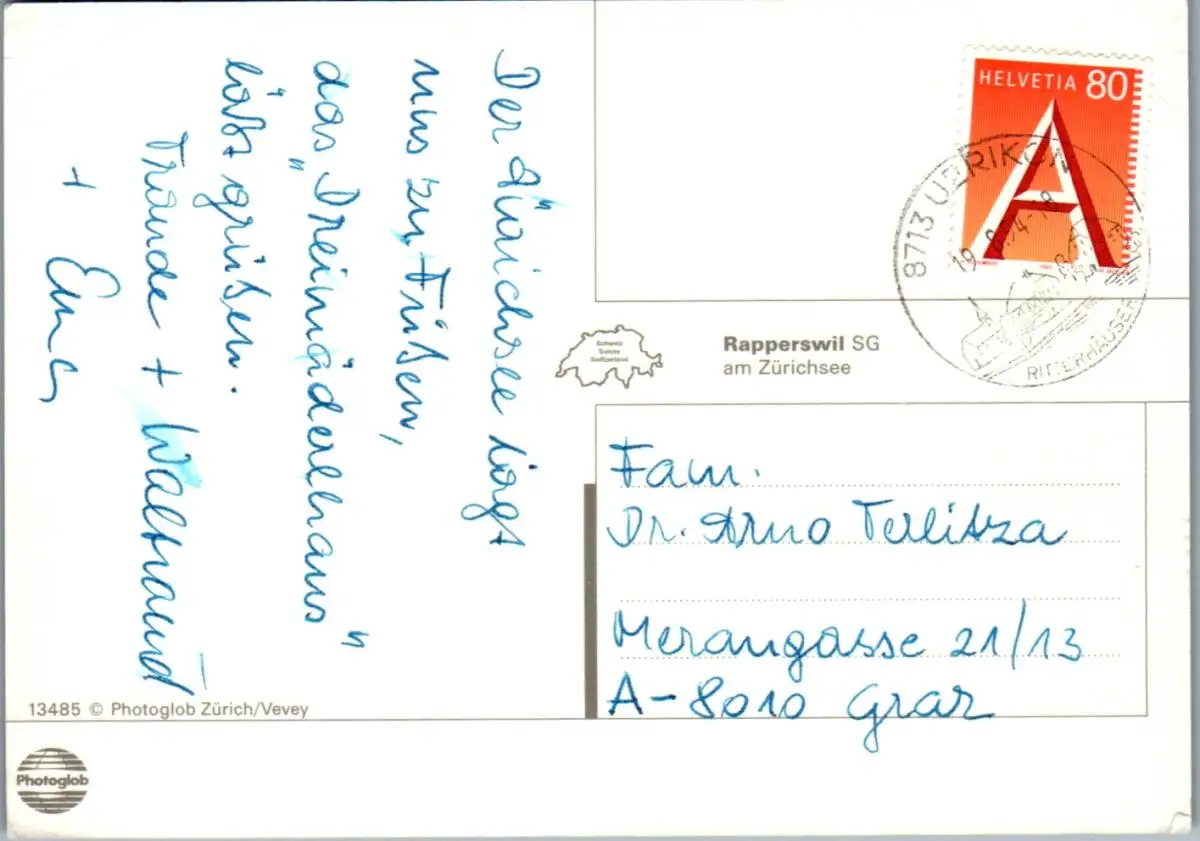 Der Zürichsee liegt
uns zu Füßen,
das "Dreimäderlhaus"
läßt grüßen.
Traude + Waltraud
+ Erna
HELVETIA 80
A
8713 UERIKON
19
RITTERHÄUSER
Schweiz
Suisse
Switzerland
Rapperswil SG
am Zürichsee
Fam.
Dr. Arno Terlitza
Merangasse 21/13
A-8010 Graz
13485 © Photoglob Zürich/Vevey
Photoglob